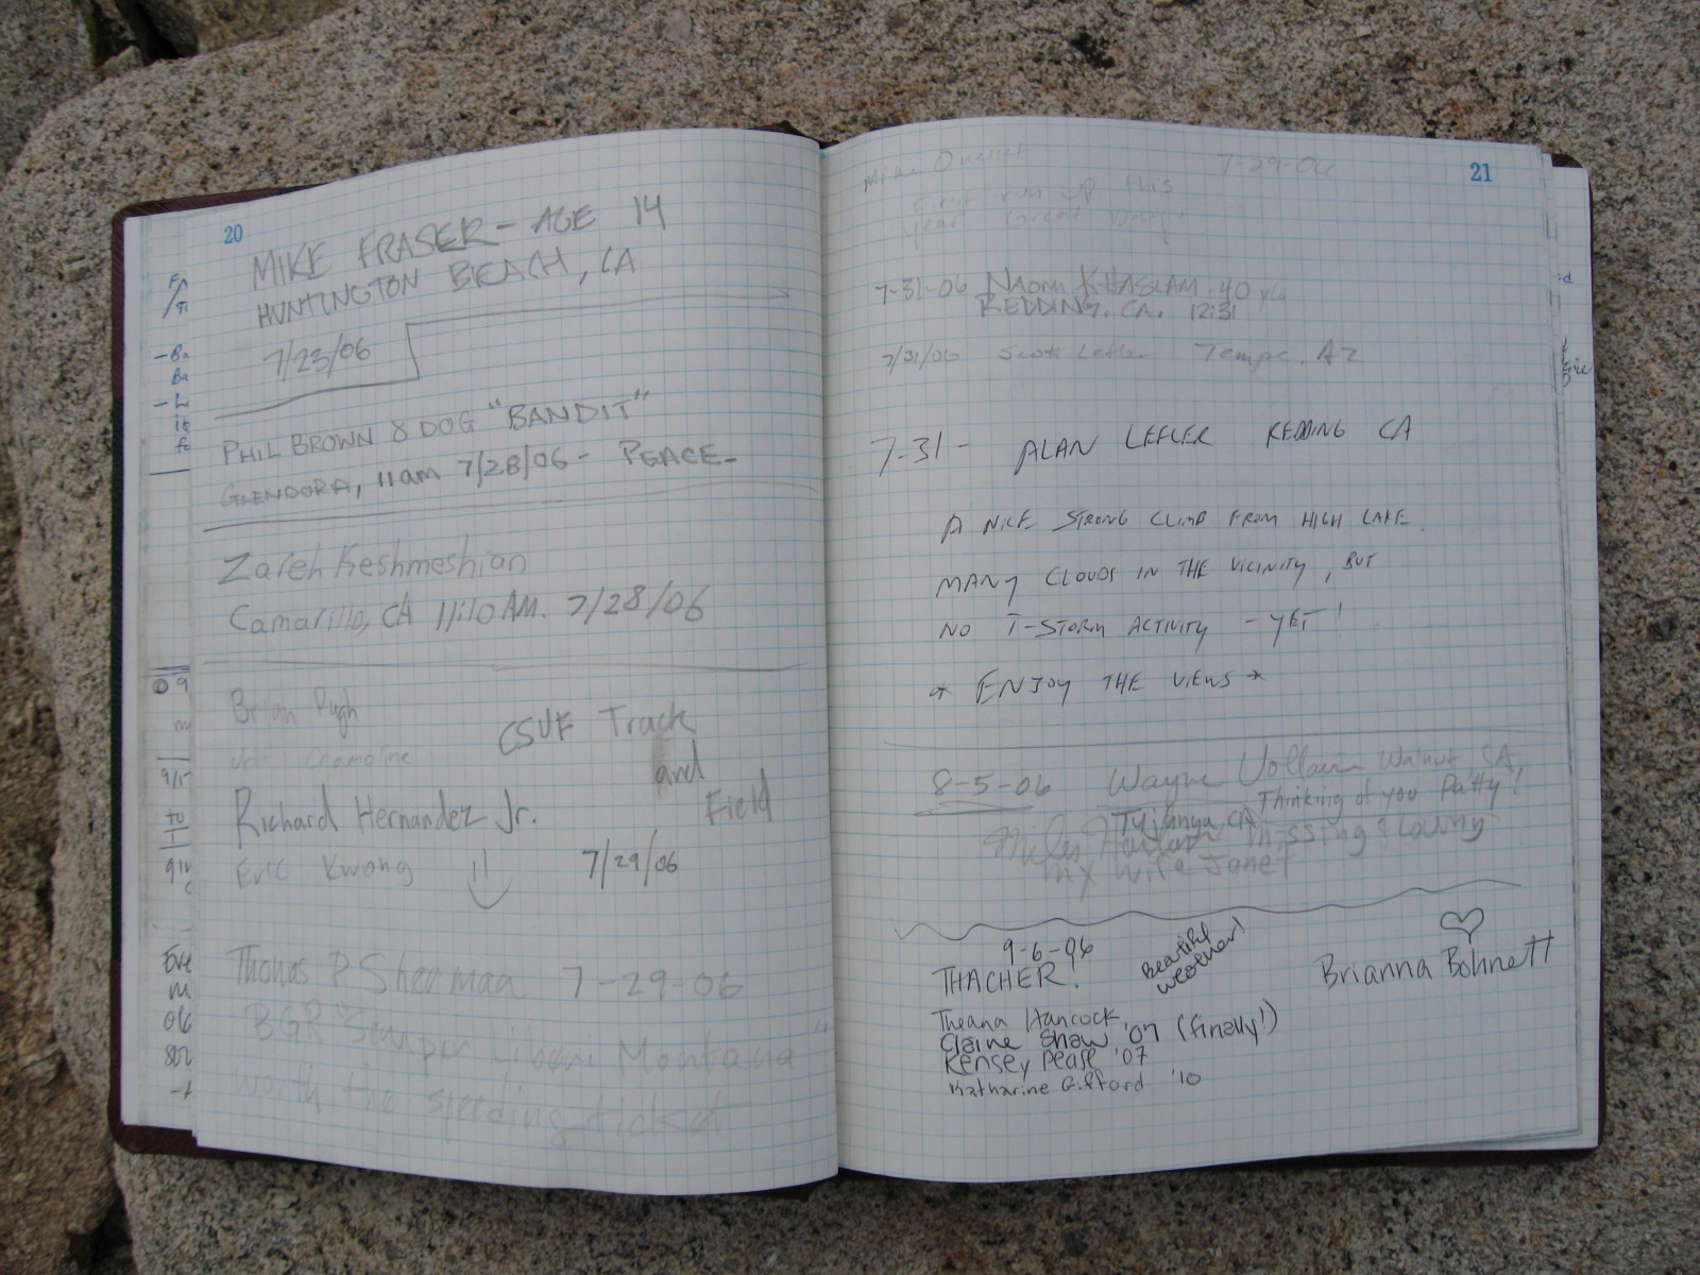 20
MIKE FRASER - AGE 14
HUNTINGTON BEACH, CA
7/23/06
PHIL BROWN & DOG "BANDIT"
GLENDORA, 11am 7/28/06 - PEACE-
Zareh Keshmeshian
Camarillo, CA 11:10 AM. 7/28/06
Brian Pugh
CSUF Track
and
Field
Richard Hernandez Jr.
Eric Kwong
7/29/06
Thomas P Sherman 7-29-06
BGR "Semper Liberi Montana"
worth the speeding ticket
21
Mike 7-29-06
first run up this
year
7-31-06 NAOMI K HASLAM - 40
REDDING, CA. 12:31
7/31/06 Scott Lefler Tempe, AZ
7-31- ALAN LEFLER REDDING CA
A NICE STRONG CLIMB FROM HIGH LAKE.
MANY CLOUDS IN THE VICINITY, BUT
NO T-STORM ACTIVITY - YET!
* ENJOY THE VIEWS *
8-5-06 Wayne Walnut, CA,
Thinking of you Patty!
Tujunga, CA
Miles missing & loving
my wife Janet
9-6-06
THACHER!
Beautiful
weather!
Brianna Bohnett
Theana Hancock
Claire Shaw '07 (finally!)
Kensey Pease '07
Katharine Gifford '10